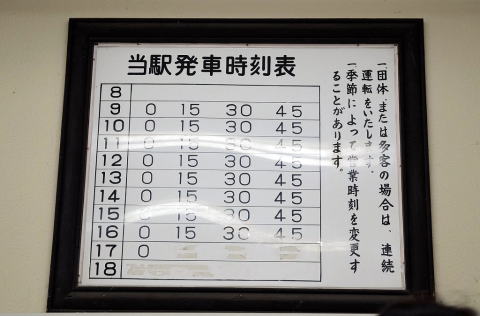 当駅発車時刻表
8
9 0 15 30 45
10 0 15 30 45
11 0 15 30 45
12 0 15 30 45
13 0 15 30 45
14 0 15 30 45
15 0 15 30 45
16 0 15 30 45
17 0
18
一団体、または多客の場合は、連続
運転をいたします。
一季節によって営業時刻を変更す
ることがあります。